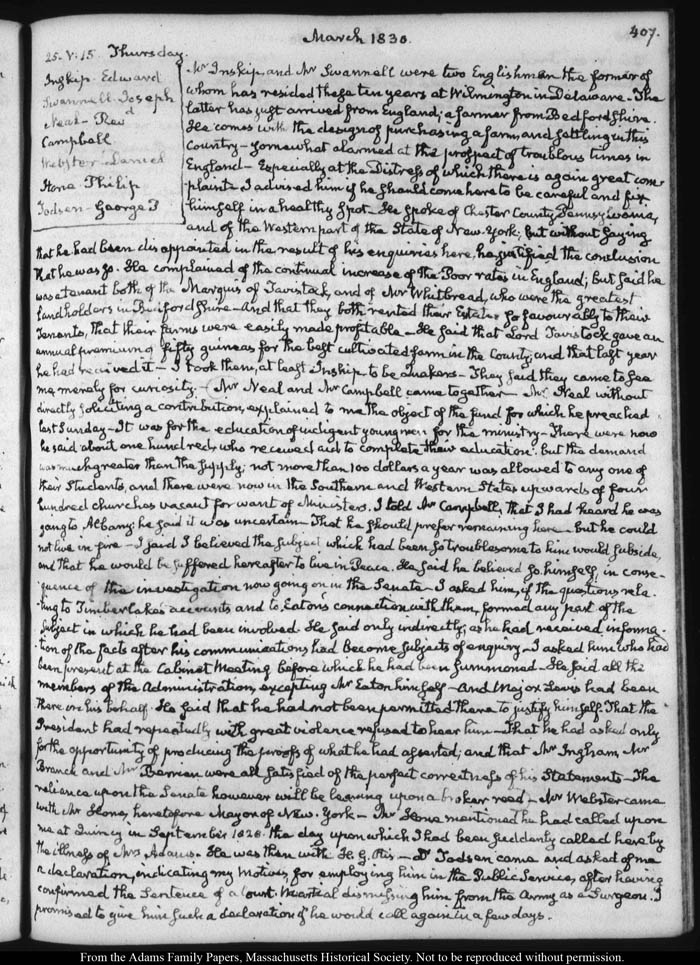 March 1830.
407.
25. V: 15. Thursday.
Inskip. Edward
Swannell. Joseph
Neal - Revd
Campbell
Webster - Daniel
Hone Philip
Todsen - George P
Mr Inskip and Mr Swannell were two Englishmen the former of
whom has resided these ten years at Wilmington in Delaware - The
latter has just arrived from England; a farmer from Bedfordshire.
He comes with the design of purchasing a farm, and settling in this
Country - somewhat alarmed at the prospect of troublous times in
England - Especially at the Distress of which there is again great com-
plaint - I advised him if he should come here to be careful and fix
himself in a healthy spot - He spoke of Chester County Pennsylvania,
and of the Western part of the State of New-York, but without saying
that he had been disappointed in the result of his enquiries here, he justified the conclusion
that he was so. He complained of the continual increase of the Poor rates in England; but said he
was a tenant both of the Marquis of Tavistock, and of Mr Whitbread, who were the greatest
landholders in Bedfordshire - And that they both rented their Estates so favourably to their
Tenants, that their farms were easily made profitable - He said that Lord Tavistock gave an
annual premium of fifty guineas for the best cultivated farm in the County, and that last year
he had received it - I took them, at least Inskip to be Quakers - They said they came to see
me merely for curiosity. - Mr Neal and Mr Campbell came together - Mr Neal without
directly soliciting a contribution, explained to me the object of the fund for which he preached
last Sunday - It was for the education of indigent young men for the ministry - There were now
he said about one hundred, who received aid to complete their education: but the demand
was much greater than the supply; not more than 100 dollars a year was allowed to any one of
their Students, and there were now in the Southern and Western States upwards of four
hundred churches vacant for want of Ministers. I told Mr Campbell, that I had heard he was
going to Albany: he said it was uncertain - That he should prefer remaining here - but he could
not live in fire - I said I believed the subject which had been so troublesome to him would subside,
and that he would be suffered hereafter to live in Peace. He said he believed so himself, in conse-
quence of the investigation now going on in the Senate - I asked him, if the questions rela-
ting to Timberlake's accounts and to Eaton's connection with them, formed any part of the
subject in which he had been involved. He said only indirectly; as he had received informa-
tion of the facts after his communications had become subjects of enquiry - I asked him who had
been present at the Cabinet Meeting before which he had been summoned - He said all the
members of the Administration, excepting Mr Eaton himself - And Major Lewis had been
there on his behalf. He said that he had not been permitted there to justify himself. That the
President had repeatedly with great violence refused to hear him - That he had asked only
for the opportunity of producing the proofs of what he had asserted; and that Mr Ingham, Mr
Branch and Mr Berrien were all satisfied of the perfect correctness of his Statements - The
reliance upon the Senate however will be leaning upon a broken reed - Mr Webster came
with Mr Hone, heretofore Mayor of New-York - Mr Hone mentioned he had called upon
me at Quincy in September 1828. the day upon which I had been suddenly called here by
the illness of Mrs Adams. He was then with H. G. Otis - Dr Todsen came and asked of me
a declaration, indicating my motives for employing him in the Public Service, after having
confirmed the Sentence of a Court-Martial dismissing him from the Army as a Surgeon. I
promised to give him such a declaration if he would call again in a few days.
From the Adams Family Papers, Massachusetts Historical Society. Not to be reproduced without permission.